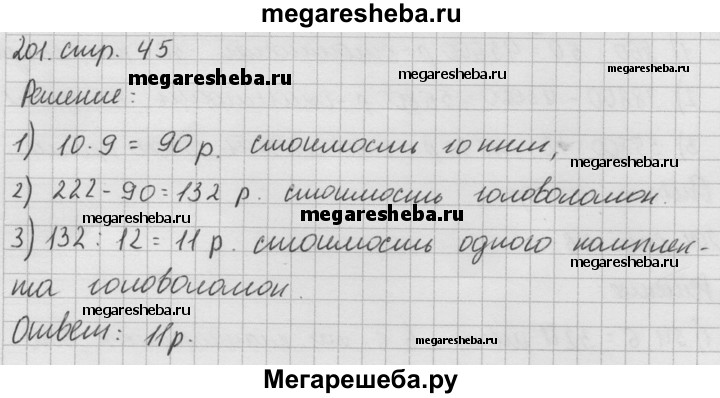 megaresheba.ru
201. стр. 45
megaresheba.ru megaresheba.ru
Решение:
1) 10·9 = 90 р. стоимость 10 книг,
megaresheba.ru
2) 222 - 90 = 132 р. стоимость головоломок.
megaresheba.ru
3) 132 : 12 = 11 р. стоимость одного комплек-
megaresheba.ru
та головоломок.
megaresheba.ru
Ответ: 11 р.
megaresheba.ru
Мегарешеба.ру